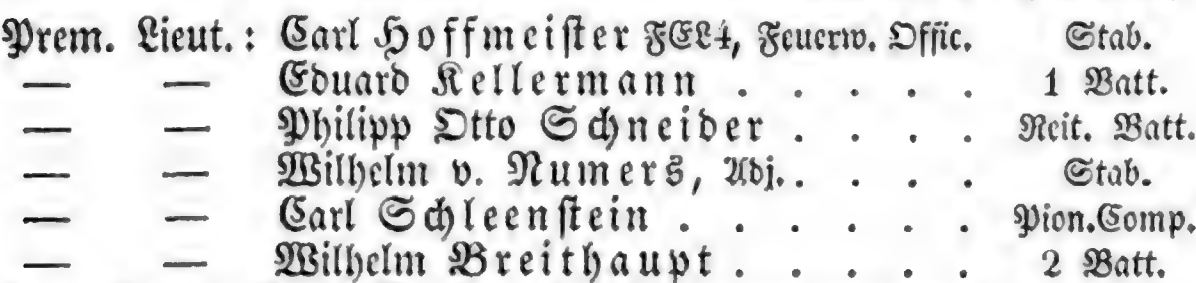 Prem. Lieut.: Carl Hoffmeister FEL4, Feuerw. Offic. Stab.
— — Eduard Kellermann . . . . . 1 Batt.
— — Philipp Otto Schneider . . . . Reit. Batt.
— — Wilhelm v. Numers, Adj.. . . . Stab.
— — Carl Schleenstein . . . . . . Pion.Comp.
— — Wilhelm Breithaupt . . . . . 2 Batt.